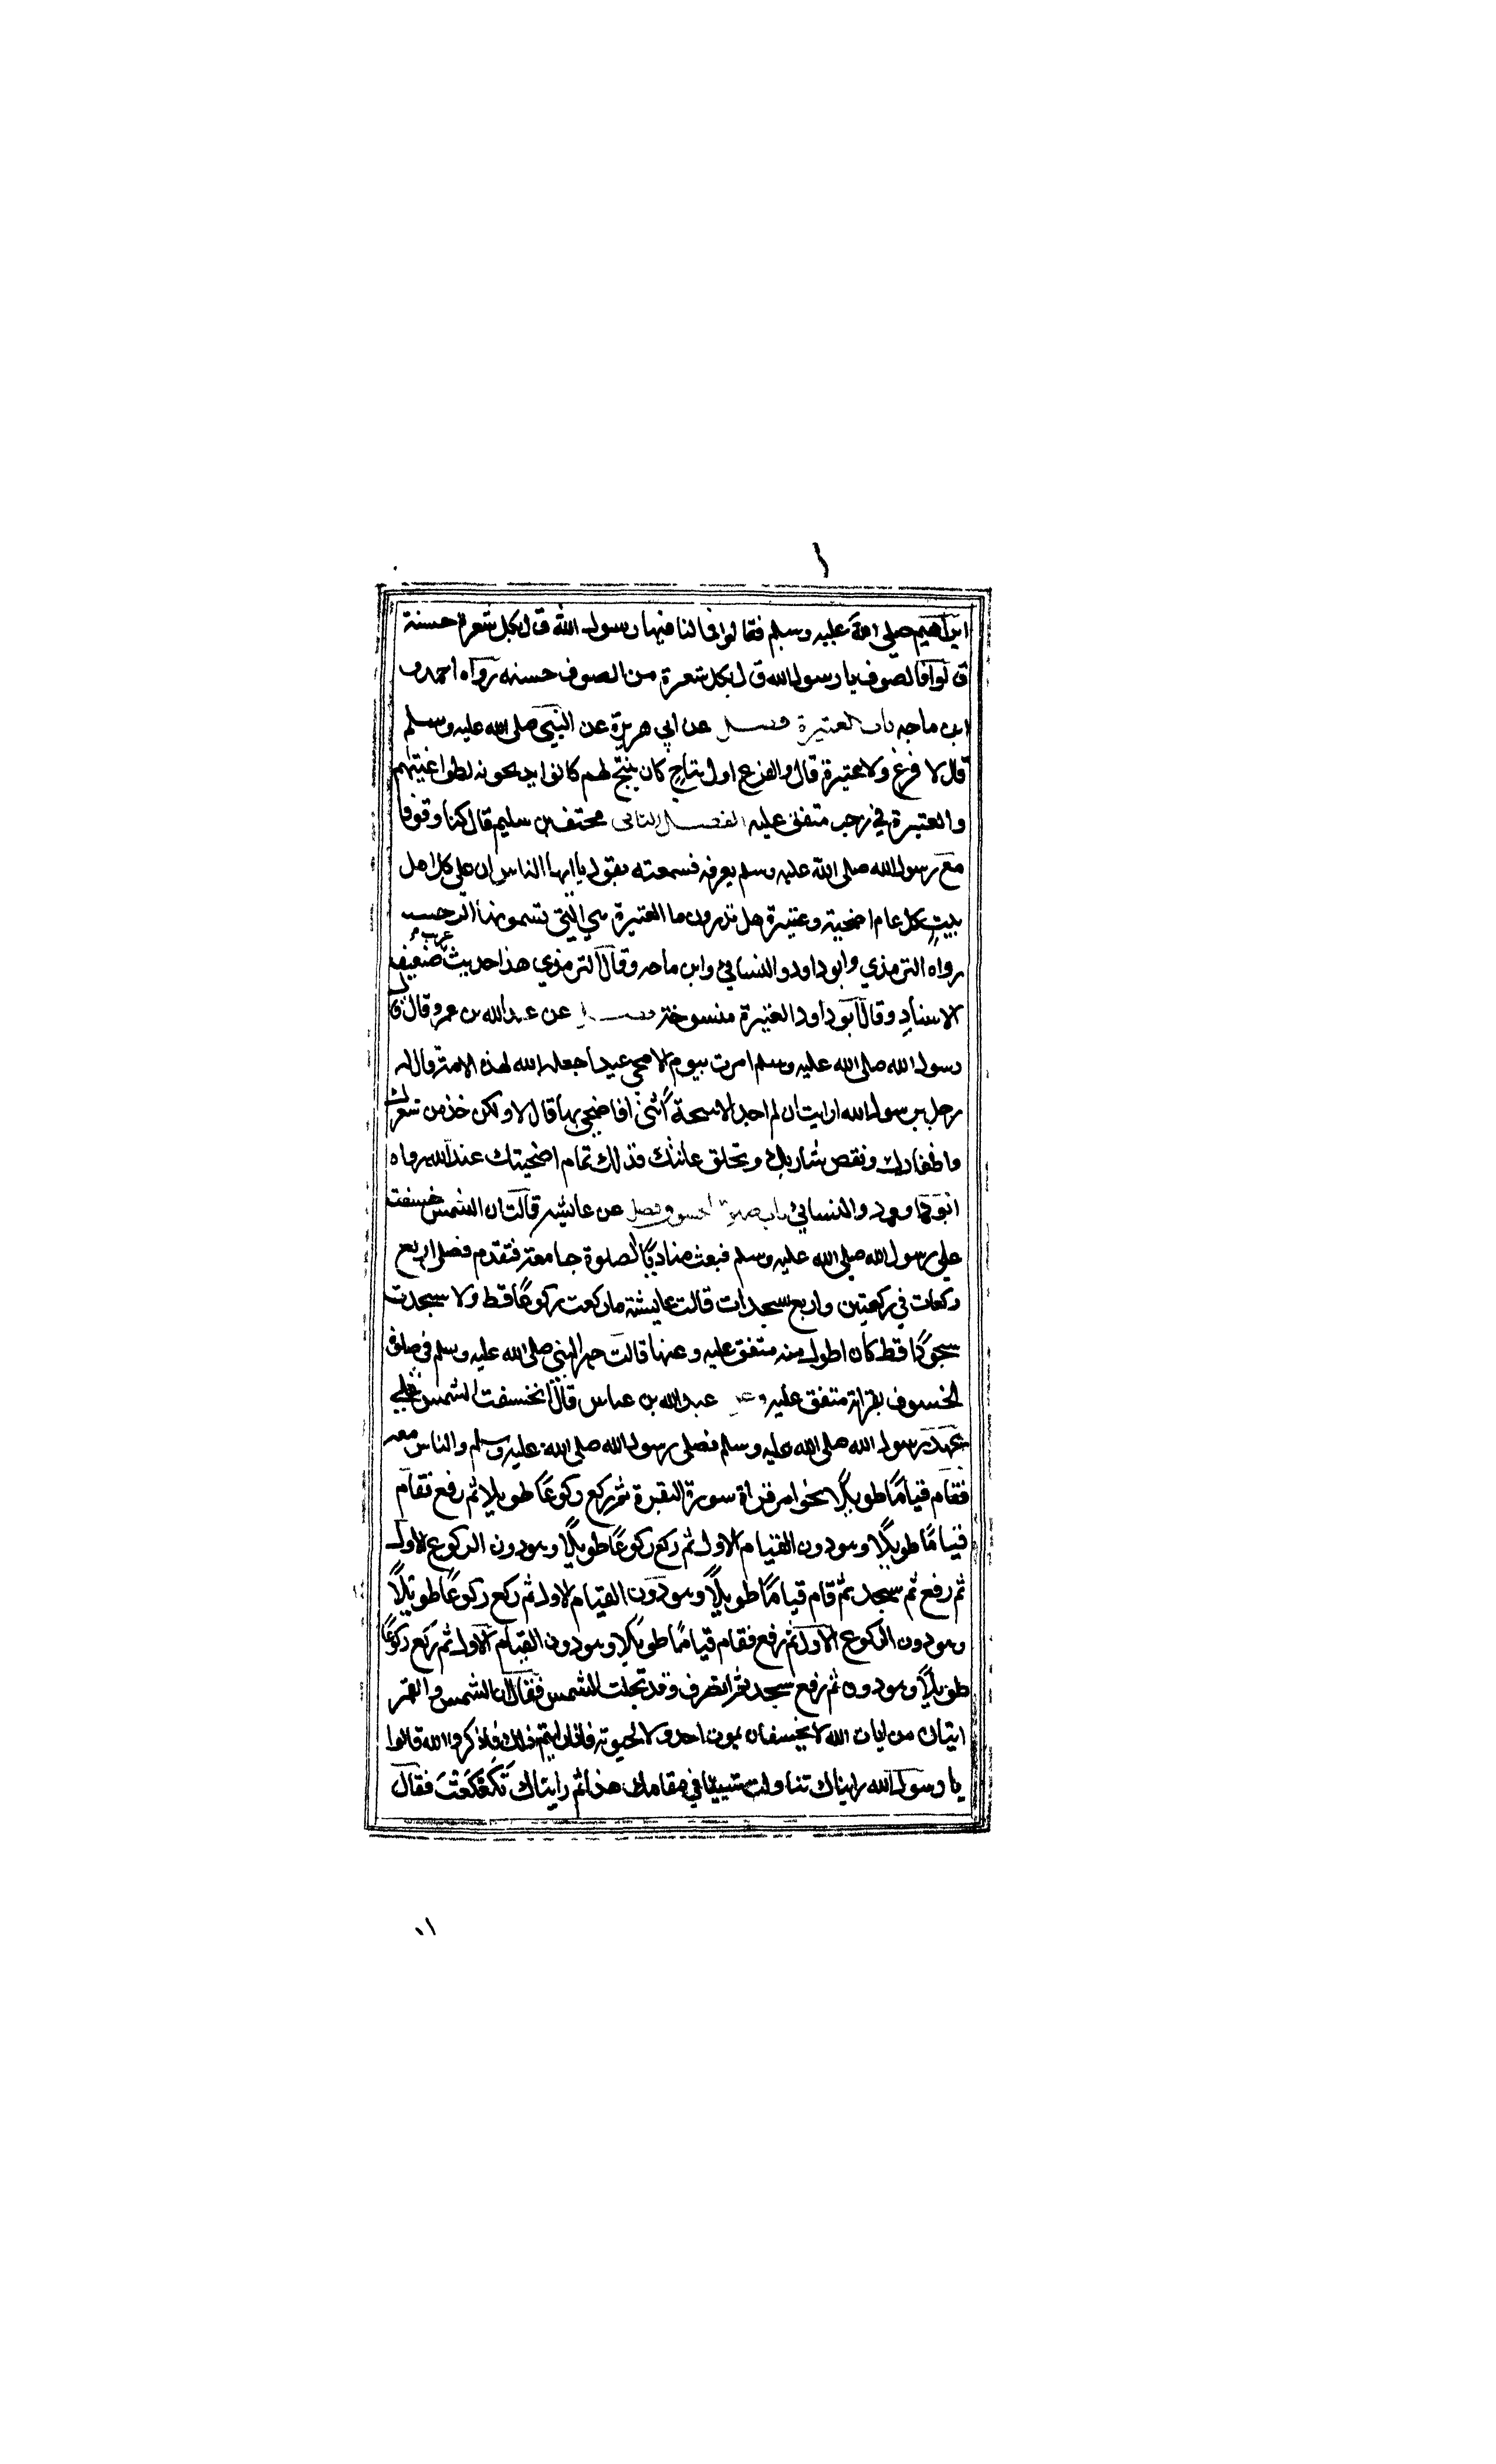 ابراهيم صلى الله عليه وسلم فقالوا فمالنا فيها رسول الله قال بكل شعرة حسنة
قالوا فالصوف يا رسول الله قال بكل شعرة من الصوف حسنه رواه احمد و
ابن ماجه باب العتيرة فصل عن ابي هريرة عن النبي صلى الله عليه وسلم
قال لا فرع ولا عتيرة قال والفرع اول نتاج كان ينتج لهم كانوا يذبحونه لطواغيتهم
والعتيرة في رجب متفق عليه الفصل الثاني مخنف بن سليم قال كنا وقوفا
مع رسول الله صلى الله عليه وسلم بعرفه فسمعته يقول يا ايها الناس ان على كل اهل
بيت كل عام اضحية وعتيرة هل تدرون ما العتيرة هي التي تسمونها الرجب
رواه الترمذي وابو داود والنسائي وابن ماجه وقال الترمذي هذا حديث غريب ضعيف
الاسناد وقال ابو داود العتيرة منسوخة فصل عن عبد الله بن عمرو قال قال
رسول الله صلى الله عليه وسلم امرت بيوم الاضحى عيدا جعله الله لهذه الامة قال له
رجل يرسول الله ارايت ان لم اجد الا منيحة انثى افاضحي بها قال لا ولكن خذ من شعرك
واظفارك وتقص شاربك وتحلق عانتك فذلك تمام اضحيتك عند الله رواه
ابو داود والنسائي باب صلوة الخسوف فصل عن عايشه قالت ان الشمس خسفت
على رسول الله صلى الله عليه وسلم فبعث مناديا الصلوة جامعة فتقدم فصلى اربع
ركعات في ركعتين واربع سجدات قالت عايشة ما ركعت ركوعا قط ولا سجدت
سجودا قط كان اطول منه متفق عليه وعنها قالت جهر النبي صلى الله عليه وسلم في صلوة
الخسوف بقراته متفق عليه وعن عبد الله بن عباس قال انخسفت الشمس على
عهد رسول الله صلى الله عليه وسلم فصلى رسول الله صلى الله عليه وسلم والناس معه
فقام قياما طويلا نحوا من قراة سورة البقرة ثم ركع ركوعا طويلا ثم رفع فقام
قياما طويلا وهو دون القيام الاول ثم ركع ركوعا طويلا وهو دون الركوع الاول
ثم رفع ثم سجد ثم قام قياما طويلا وهو دون القيام الاول ثم ركع ركوعا طويلا
وهو دون الركوع الاول ثم رفع فقام قياما طويلا وهو دون القيام الاول ثم ركع ركوعا
طويلا وهو دون ثم رفع سجد ثم انصرف وقد تجلت الشمس فقال ان الشمس والقمر
ايتان من ايات الله لا يخسفان لموت احد ولا لحيوته فاذا رايتم ذلك فاذكروا الله قالوا
يا رسول الله رايناك تناولت شيئا في مقامك هذا ثم رايناك تكعكعت فقال